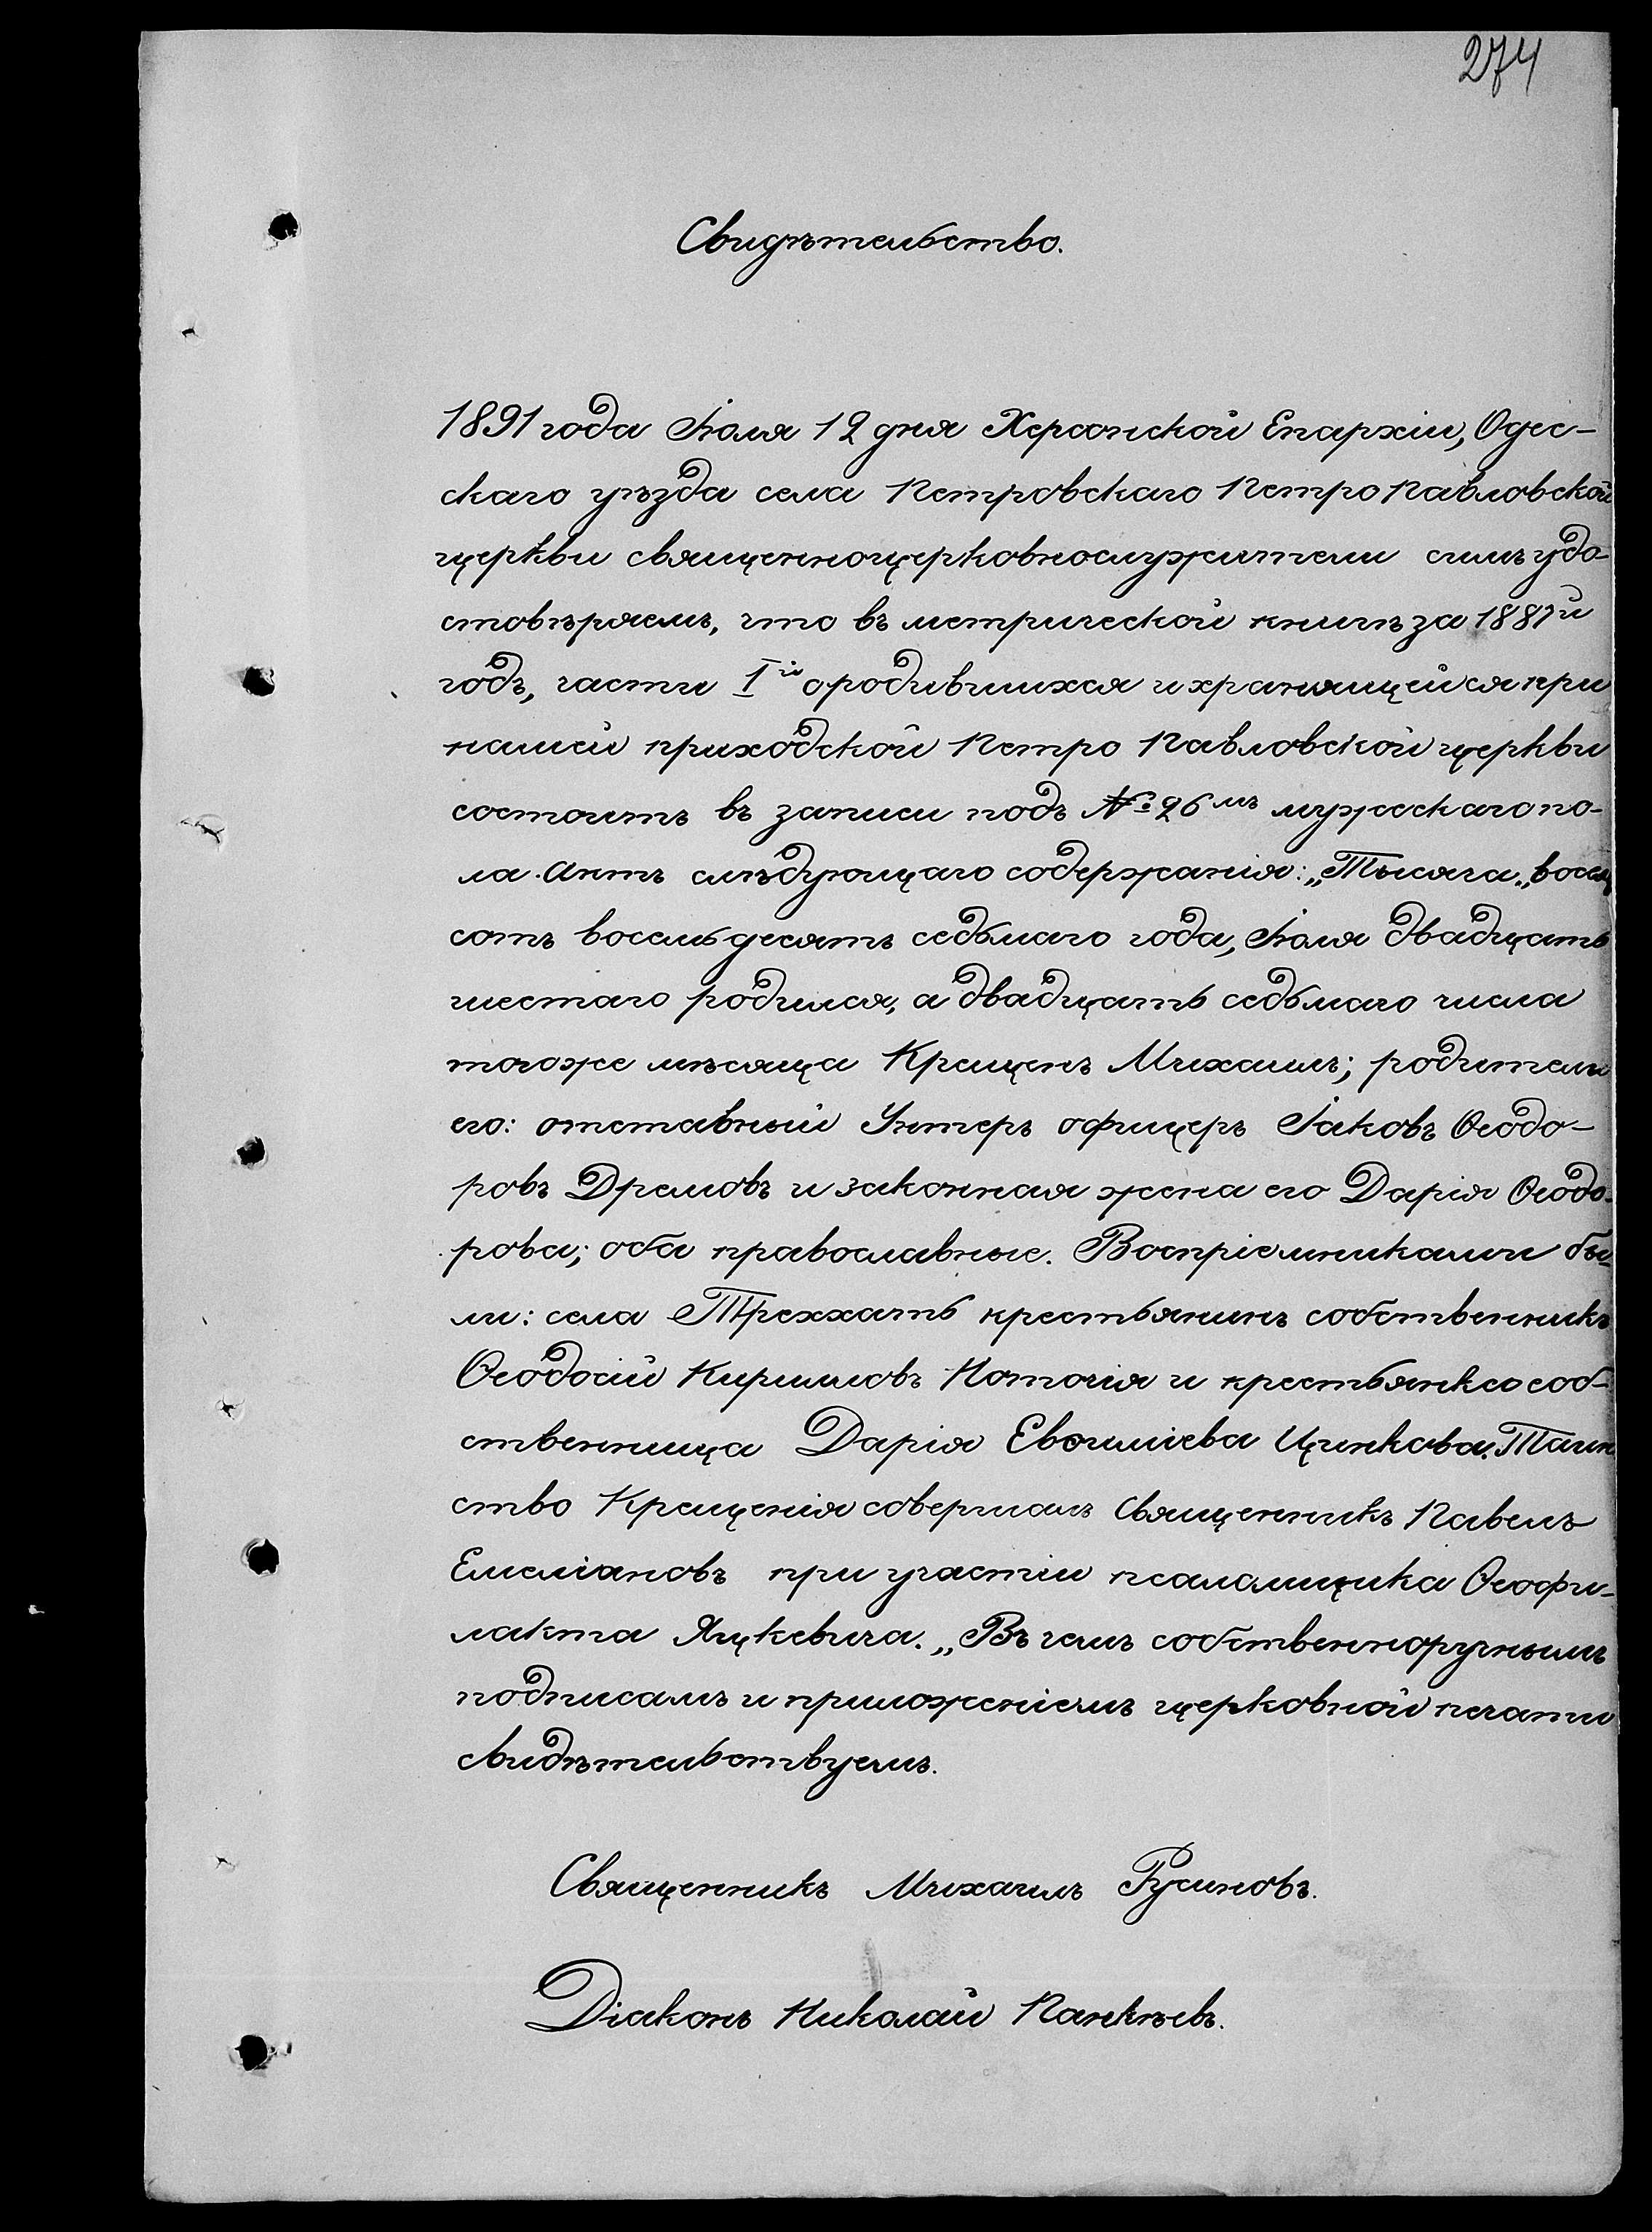 274
Свидѣтельство.
1891 года Іюля 12 дня Херсонской Епархіи, Одес-
скаго уѣзда села Петровскаго Петро Павловской
церкви священноцерковнослужители симъ удо-
стовѣряемъ, что въ метрической книгѣ за 1887й
годъ, части Iй о родившихся и хранящейся при
нашей приходской Петро Павловской церкви
состоитъ въ записи подъ № 26мъ мужескаго по-
ла. Актъ слѣдующаго содержанія: „Тысяча„ восемь
сотъ восемьдесятъ седьмаго года, Іюля двадцать
шестаго родился, а двадцать седьмаго числа
тогоже мѣсяца Крещенъ Михаилъ; родители
его: отставный Унтеръ офицеръ Іаковъ Ѳеодо-
ровъ Дремовъ и законная жена его Дарія Ѳеодо-
рова; оба православные. Воспріемниками бы-
ли: села Треххатъ крестьянинъ собственникъ
Ѳеодосій Кирилловъ и крестьянка соб-
ственница Дарія Цинкова. Таин
ство Крещенія совершалъ Священникъ Павелъ
Емеліановъ при участіи псаломщика Ѳеофи-
лакта Яцкевича. „Въ чемъ собственноручнымъ
подписамъ и приложеніемъ церковной печати
свидѣтельствуемъ.
Священникъ Михаилъ Русиновъ.
Діаконъ Николай Панкѣевъ.